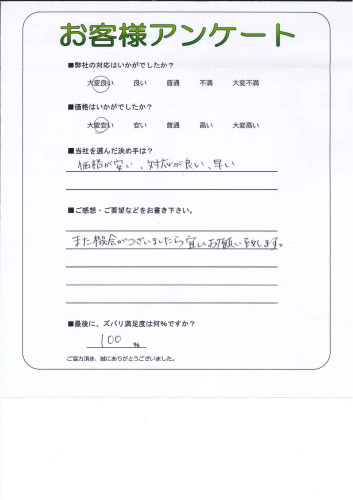 お客様アンケート
■弊社の対応はいかがでしたか？
大変良い 良い 普通 不満 大変不満
■価格はいかがでしたか？
大変安い 安い 普通 高い 大変高い
■当社を選んだ決め手は？
価格が安い、対応が良い、早い
■ご感想・ご要望などをお書き下さい。
また機会がございましたら宜しくお願い致します。
■最後に、ズバリ満足度は何%ですか？
100 %
ご協力頂き、誠にありがとうございました。